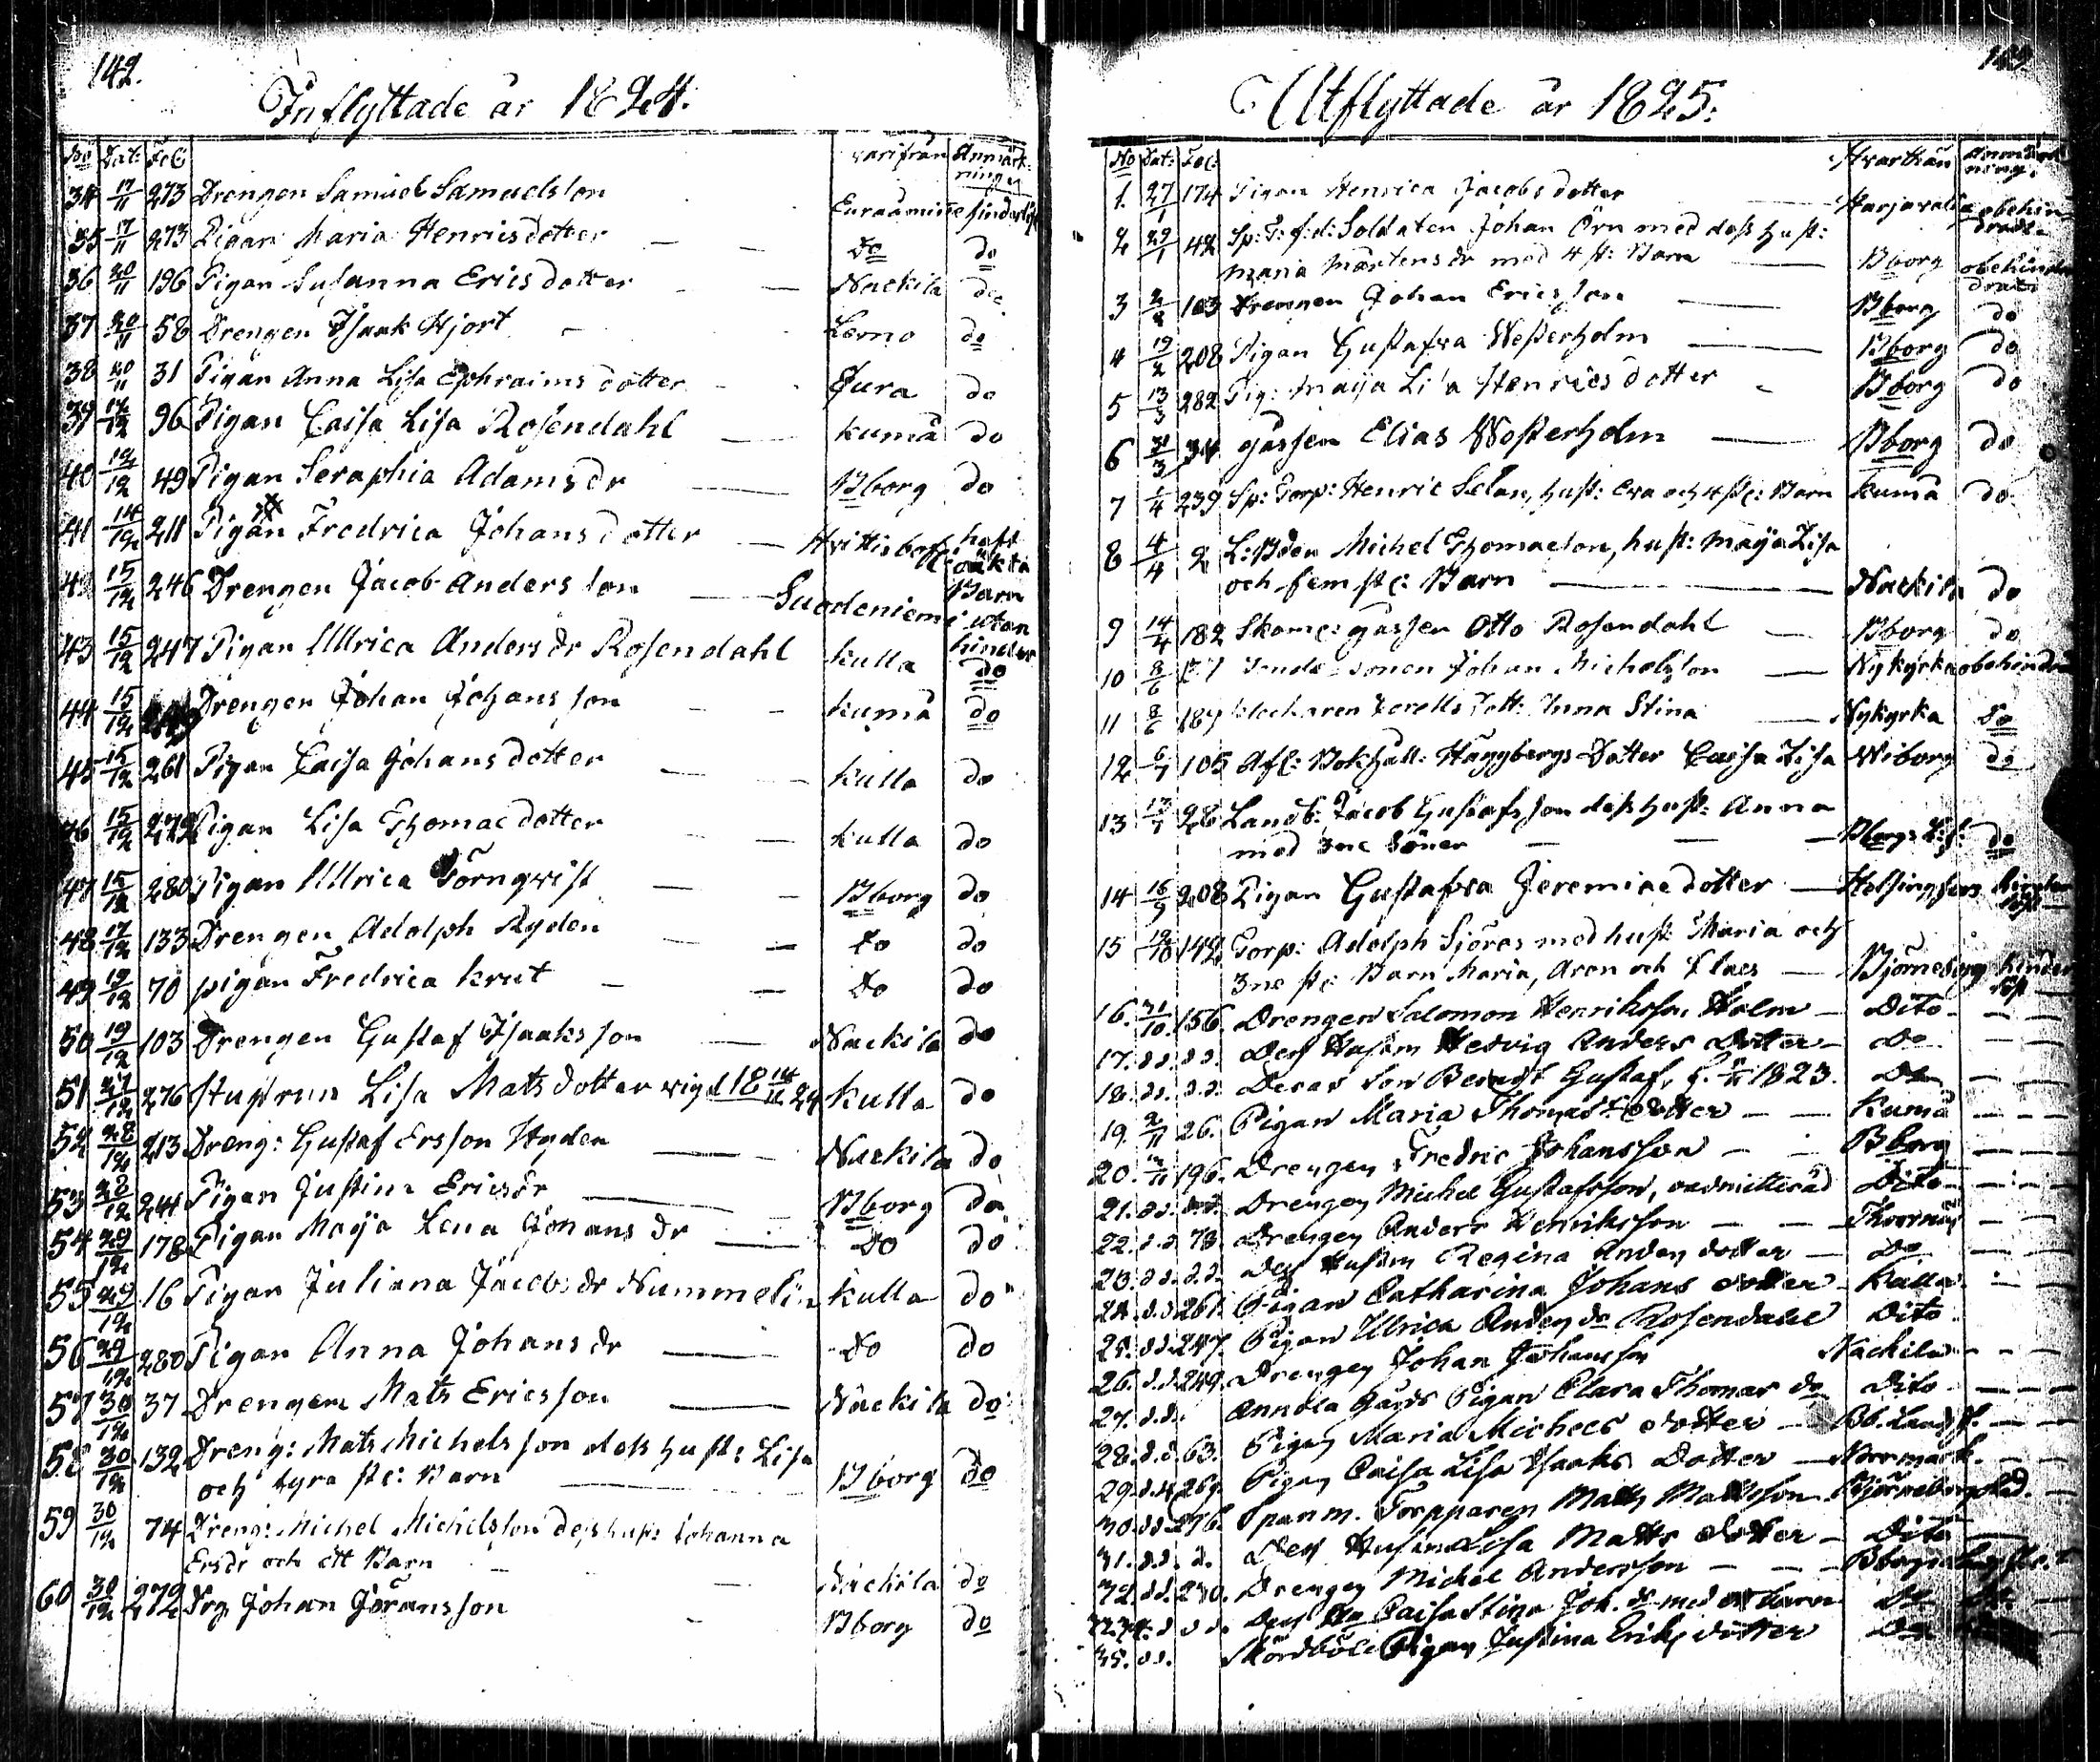 142.
Inflyttade år 1824.
No Dat: Fol: varifrån Anmärk-
ningar
34 17/11 273 Drengen Samuel Samuelsson Euraåminne hinderlöst
35 17/11 273 Pigan Maria Henricsdotter Do do
36 20/11 196 Pigan Susanna Ericsdotter Nackila do
37 20/11 58 Drengen Isaak Hjort Lemo do
38 20/11 31 Pigan Anna Lisa Ephraimsdotter Eura do
39 12/12 96 Pigan Caisa Lisa Rosendahl kumå do
40 12/12 49 Pigan Seraphia Adamsdr Bborg do
41 14/12 211 Pigan Fredrica Johansdotter Hvittisbofj haft
oäkta
Barn
42 15/12 246 Drengen Jacob Andersson Suodeniemi utan
hinder
43 15/12 247 Pigan Ullrica Andersdr Rosendahl kulla do
44 15/12 249 Drengen Johan Johansson kumå do
45 15/12 261 Pigan Caisa Johansdotter kulla do
46 15/12 272 Pigan Lisa Thomaedotter kulla do
47 15/12 280 Pigan Ullrica Törnqvist Bborg do
48 17/12 133 Drengen Adolph Ryden Do do
49 19/12 70 pigan Fredrica krut Do do
50 19/12 103 Drengen Gustaf Isaaksson Nackila do
51 27/12 276 Hustrun Lisa Matsdotter vigd 18 14/12 24 kulla do
52 28/12 213 Dreng: Gustaf Ersson Hyden Nackila do
53 28/12 241 Pigan Justina Ericsdr Bborg do
54 29/12 178 Pigan Maja Lena Johansdr Do do
55 29/12 16 Pigan Juliana Jacobsdr Nummelin kulla do
56 29/12 280 Pigan Anna Johansdr Do do
57 30/12 37 Drengen Mats Ericsson Nackila do
58 30/12 132 Dreng: Mats Michelsson dess hust: Lisa
och fyra st: Barn Bborg do
59 30/12 74 Dreng: Michel Michelsson dess hust: Johanna
Ersdr och ett Barn Nackila do
60 30/12 272 Drg Johan Jöransson Bborg do
Utflyttade år 1825:
No Dat: Fol: Hvarthän Anmärk-
ning:
1. 27/1 174 Pigan Henrica Jacobsdotter Harjavalda obehin-
drad
2 29/1 42 Sp: T: f: d: Soldaten Johan Örn med dess hust:
Maria Mårtensdr med 4 st: Barn Bborg obehin-
drade
3 103 Drengen Johan Ericsson Bborg do
4 19/2 208 Pigan Gustafva Westerholm Bborg do
5 13/3 282 Pig: Maija Lisa Henricsdotter Bborg do
6 34 gossen Elias Westerholm Bborg do
7 239 Sp: Torp: Henric Selan, hust: Eva och 4 st: Barn kumå do
8 4/4 2 L: Bden Michel Thomaeson, hust: Maija Lisa
och fem st: Barn Nackila do
9 14/4 182 Skom: gossen Otto Rosendahl Bborg do
10 8/6 sonen Johan Michelsson Nykyrka obehindrad
11 8/6 187 klockaren Dott: Anna Stina Nykyrka do
12 6/7 105 Afl: Bokhåll: Häggbergs Dotter Caisa Lisa Wiborg do
13 28 Landb: Jacob Gustafsson dess hust: Anna
med 3ne Söner Bborgs L: f: do
14 16/9 208 Pigan Gustafva Jeremiaedotter Helsingfors hinder-
löst
15 142 Torp: Adolph Sjöros med hust: Maria och
3ne st: Barn Maria, Aron och Claes Björneborg hinder-
löst
16. 31/10 156. Drengen Salomon Henriksson Holm Dito
17. d.d. d.d. Dess Hustru Hedvig Anders Dotter Do
18. d.d. d.d. Deras Son Berndt Gustaf, f. 1823. Do
19. 2/11 26. Pigan Maria Thomas dotter Kumå
20. 196. Drengen Fredric Johansson Bborg
21. d.d. d.d. Drengen Michel Gustafsson, Dito
22. d.d. 78. Drengen Anders Henriksson
23. d.d. d.d. Dess Hustru Regina Anders dotter Do
24. d.d. 261. Pigan Catharina Johans dotter Kulla
25. d.d. 247. Pigan Ulrica Anders dr Rosendahl Dito
26. d.d. 249. Drengen Johan Johansson Nackila
27. d.d. Anndla Gårds Pigan Clara Thomas dr Dito
28. d.d. 63. Pigan Maria Michels dotter Bb. Lands f.
29. d.d. 269. Pigan Caisa Lisa Isaaks Dotter Norrmark.
30. d.d. 276. Spanm. Torpparen Matts Mattsson Björneborg
31. d.d. d. Dess Hustru Lisa Matts dotter Dito
32. d.d. 230. Drengen Michel Andersson
33.34. d d d. Dess Ha Caisa Stina Joh. dr med ett barn Do Do
35. d.d. Pigan Justina Eriks dotter Do